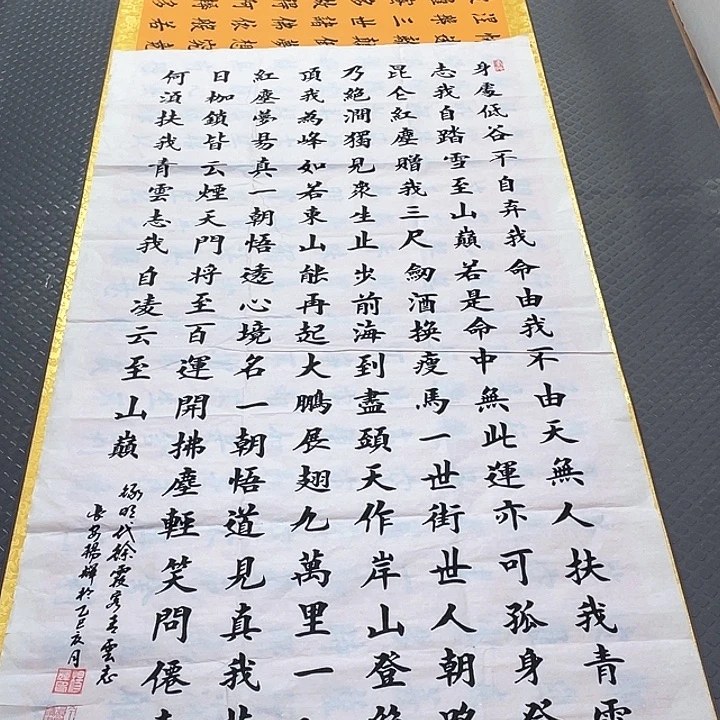 身處低谷不自弃我命由我不由天無人扶我青雲
志我自踏雪至山巔若是命中無此運亦可孤身登
昆仑紅塵贈我三尺劒酒換瘦馬一世街世人朝
乃絕澗獨見衆生止步前海到盡頭天作岸山登絕
頂我為峰如若東山能再起大鵬展翅九萬里一
紅塵夢易真一朝悟透心境名一朝悟道見真我昔
日枷鎖皆云煙天門將至百運開拂塵輕笑問僊
何湏扶我青雲志我自凌云至山巔
錄明代徐霞客青雲志
長安楊輝於乙巳夏月